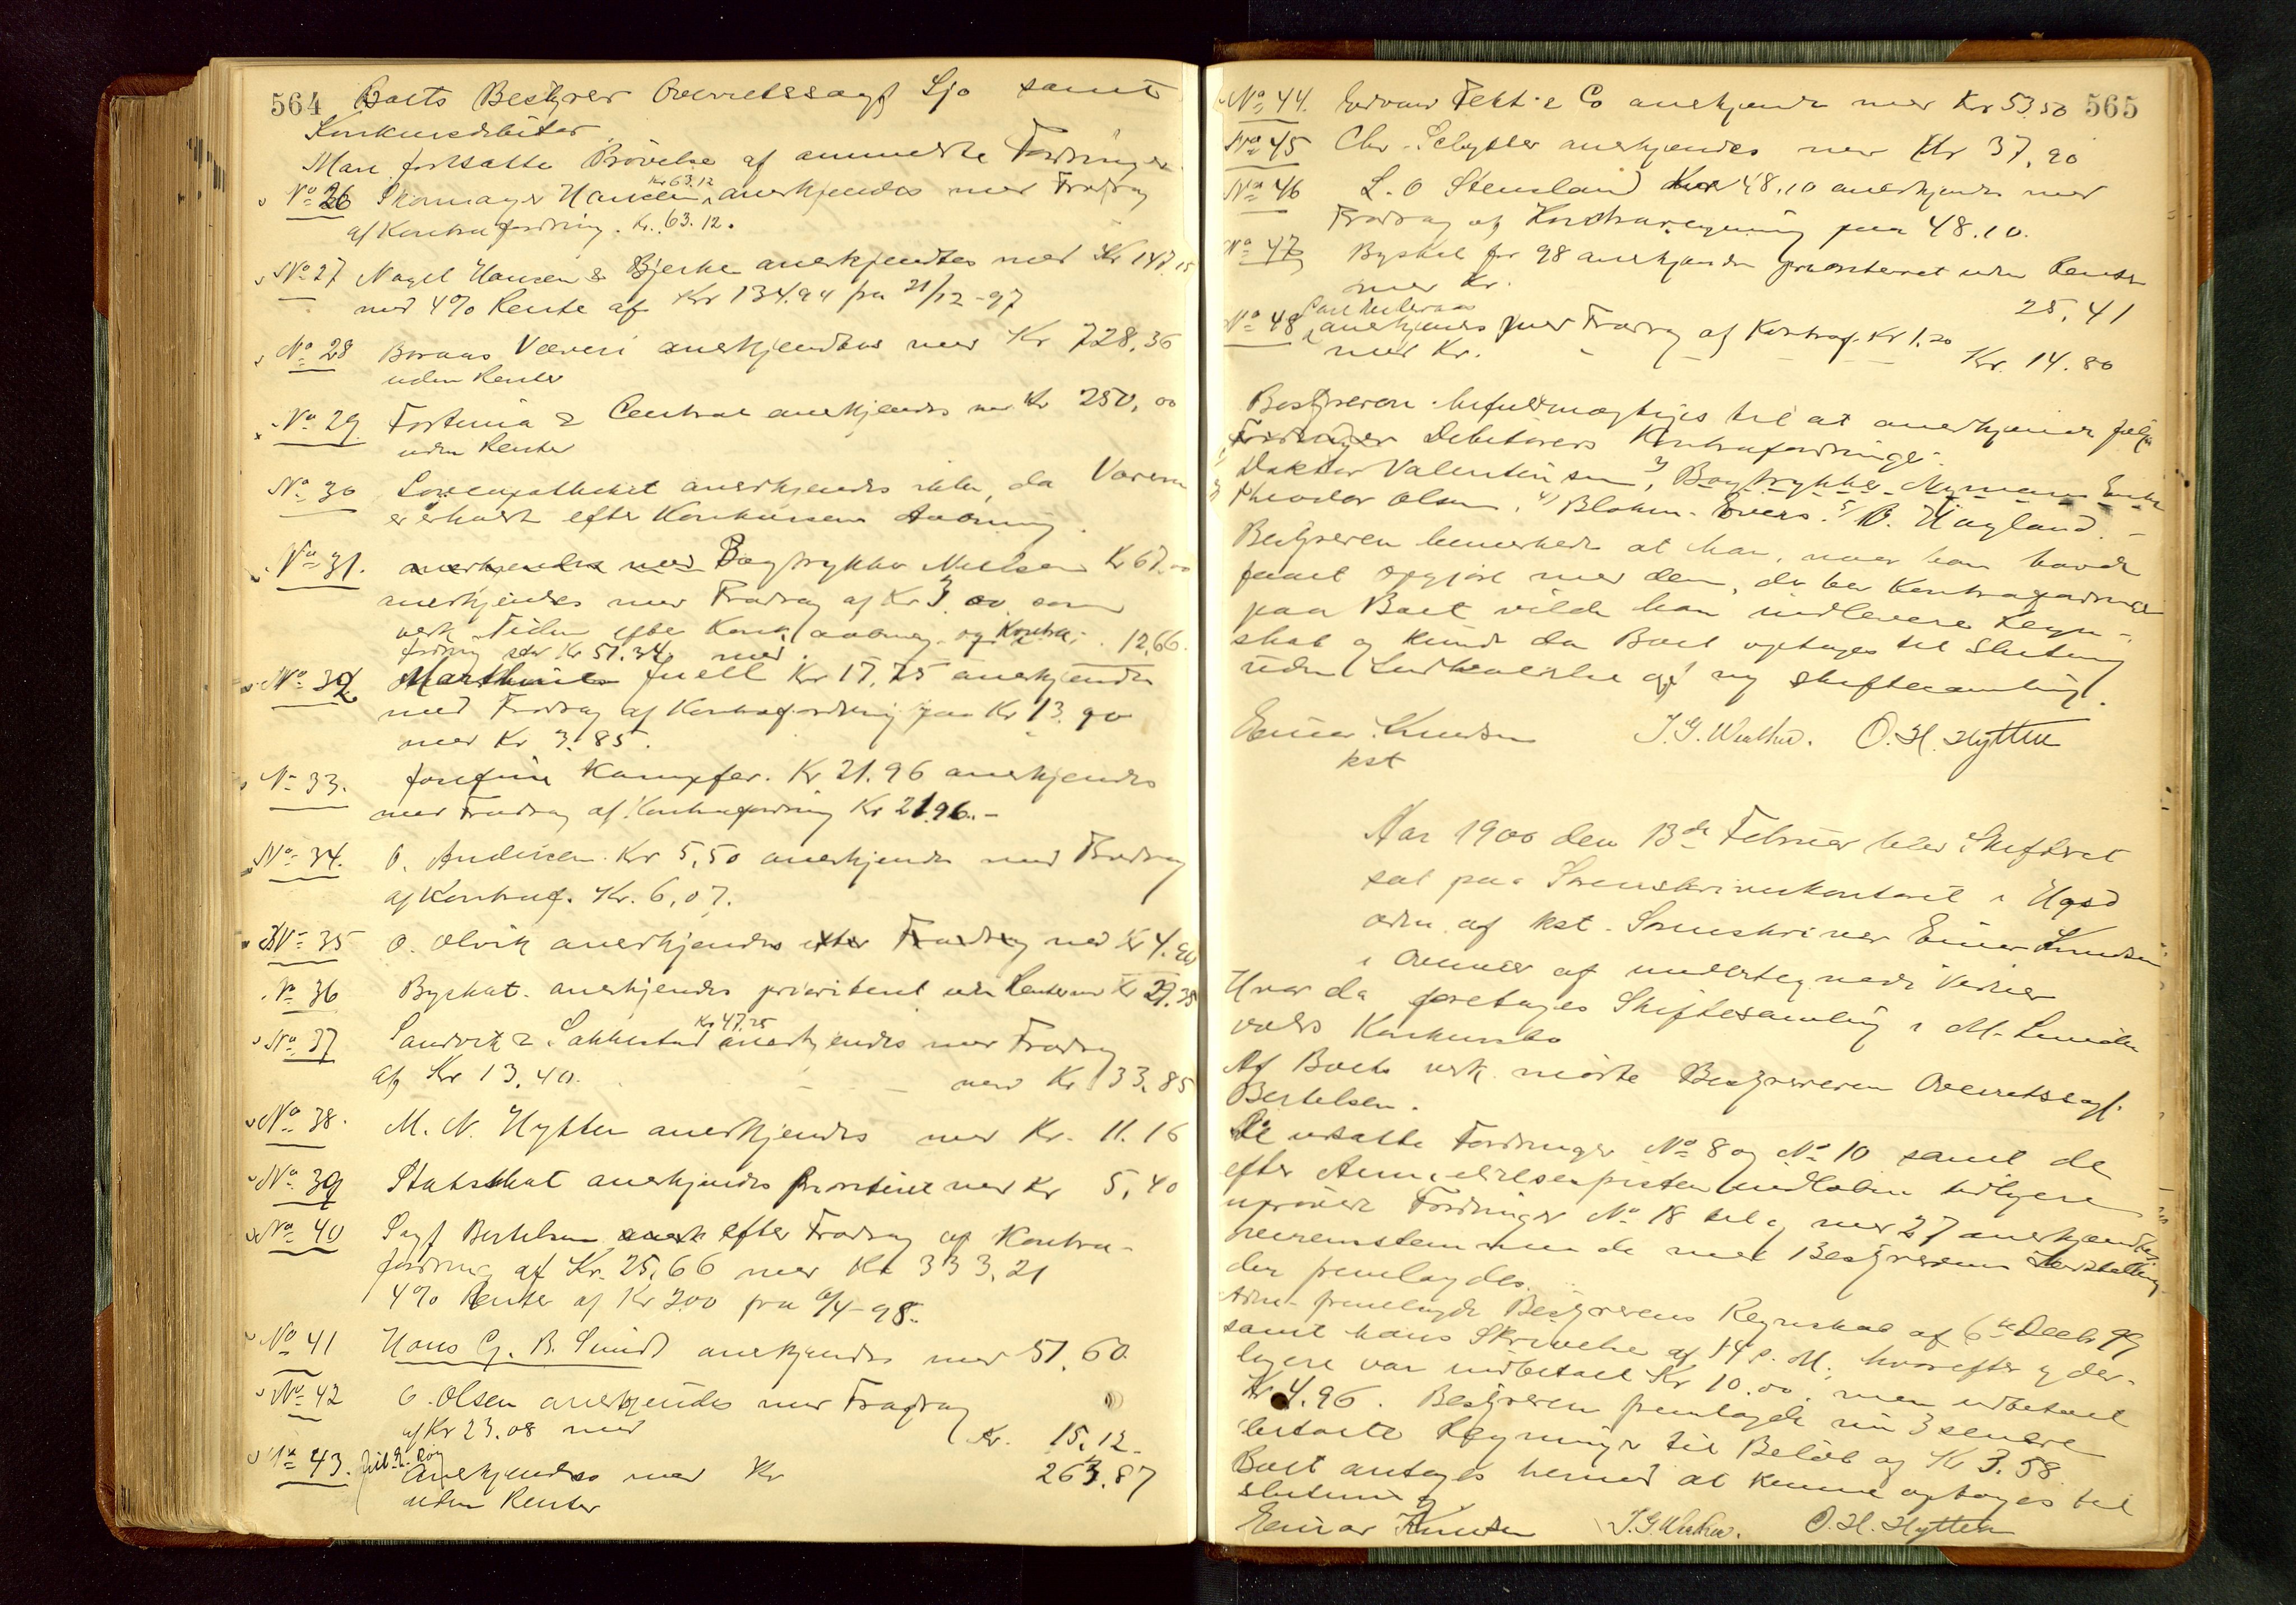 564
Boets Bestyrer Overretssagf Sjo samt
Konkursdebitor
Man fortsatte Prøvelse af anmeldte Fordringer
No 26 Skomager Hansen Kr 63.12 anerkjendes med Fradrag
af Kontrafordring. Kr. 63.12.
No 27 Nagel Hansen & Bjerke anerkjendtes med Kr 147,15
med 4% Rente af Kr 134.94 fra 21/12-97
No 28 Boraas Væveri anerkjendtes med Kr 728,36
uden Renter
No 29 Fortuna & Central anerkjendes med Kr 250,00
uden Renter
No 30 Løveapotheket anerkjendes ikke, da Varerne
er erholdt efter Konkursens Aabning.
No 31. anerkjendes med Bogtrykker Nielsen Kr 67.00
anerkjendes med Fradrag af Kr 3.00 som
vedk Tiden efter Konk aabning og Kontra-
fordring stor Kr 51.34, med 12,66.
No 32 Marthine Juell Kr 17,75 anerkjendes
med Fradrag af Kontrafordring paa Kr 13.90
med Kr 3.85.
No 33. Josefine Kampfer. Kr 21.96 anerkjendes
med Fradrag af Kontrafordring Kr 21.96.-
No 34. O. Andersen Kr 5,50 anerkjendes med Fradrag
af Kontraf. Kr. 6,07.
No 35 O. Olvik anerkjendes efter Fradrag med Kr 4.90
No 36 Byskat anerkjendes prioriteret uden Renter med Kr 27.35
No 37 Sandvik & Sakkestad Kr 47.25 anerkjendes med Fradrag
af Kr 13,40. med Kr 33,85
No 38. M. N. Hytten anerkjendes med Kr. 11.16
No 39 Statsskat anerkjendes prioriteret med Kr 5,40
No 40 Sagf Bertelsen anerk efter Fradrag af Kontra-
fordring af Kr. 25,66 med Kr 333,21
4% Renter af Kr 200 fra 6/4-98.
No 41 Hans G. B. Sundt anerkjendes med 51,60.
No 42 O. Olsen anerkjendes med Fradrag
af Kr 23.08 med Kr. 15,12-
No 43. Anerkjendes med Kr 263.87
uden Renter
565
No 44. Edvard Fett & Co anerkjendes med Kr 53.50
No 45 Chr. Schytter anerkjendes med Kr 37,90
No 46 L. O Stensland Kr 48,10 anerkjendes med
Fradrag af Kontraregning paa 48.10.
No 47 Byskat for 98 anerkjendes prioriteret uden Renter
med Kr. 25,41
No 48 anerkjendes med Fradrag af Kontraf. Kr 1.20
med Kr. Kr. 14.80
Bestyreren befuldmægtiges til at anerkjende følg
Fordringer Debitorers Kontrafordringer.
Doktor Valentinsen, 3) Bogtrykker Nymans Enke
Theodor Olsen, 4) Blohm - Overs. 5) B. Hagland.-
Bestyreren bemerkede at han, naar han havde
faaet opgjort med dem, der har Kontrafordringer
paa Boet vilde han indlevere Regn-
skab og kunde da Boet optages til Slutning
uden Indkaldelse af ny Skiftesamling.
Einar Knudsen J. G. Werther. O. H. Hytten
kst
Aar 1900 den 13de Februar blev Skifteret
sat paa Sorenskriverkontoret i Hgsd
adm. af kst. Sorenskriver Einar Knudsen
i Overvær af undertegnede Vidner
Hvor da foretages Skiftesamling i M.
volds Konkursbo
Af Boets vedk. mødte Bestyreren Overretssagf.
Bertelsen.
De udsatte Fordringer No 8 og No 10 samt de
efter Anmeldelsesfristen indløbne tidligere
uprøvede Fordringer No 18 til og med 27 anerkjendtes
overensstemmende med Bestyrerens Indstilling
der fremlagdes.
Adm. fremlagde Bestyrerens Regnskab af 6te Decbr 99
samt hans Skrivelse af 14 p. M. hvorefter yder-
ligere var indbetalt Kr 10.00. men udbetalt
Kr 4.96. Bestyreren fremlagde nu 3 senere
betalte Regninger til Beløb af Kr 3.58.
Boet antages hermed at kunne optages til
slutning
Einar Knudsen J. G. Werther. O. H. Hytten